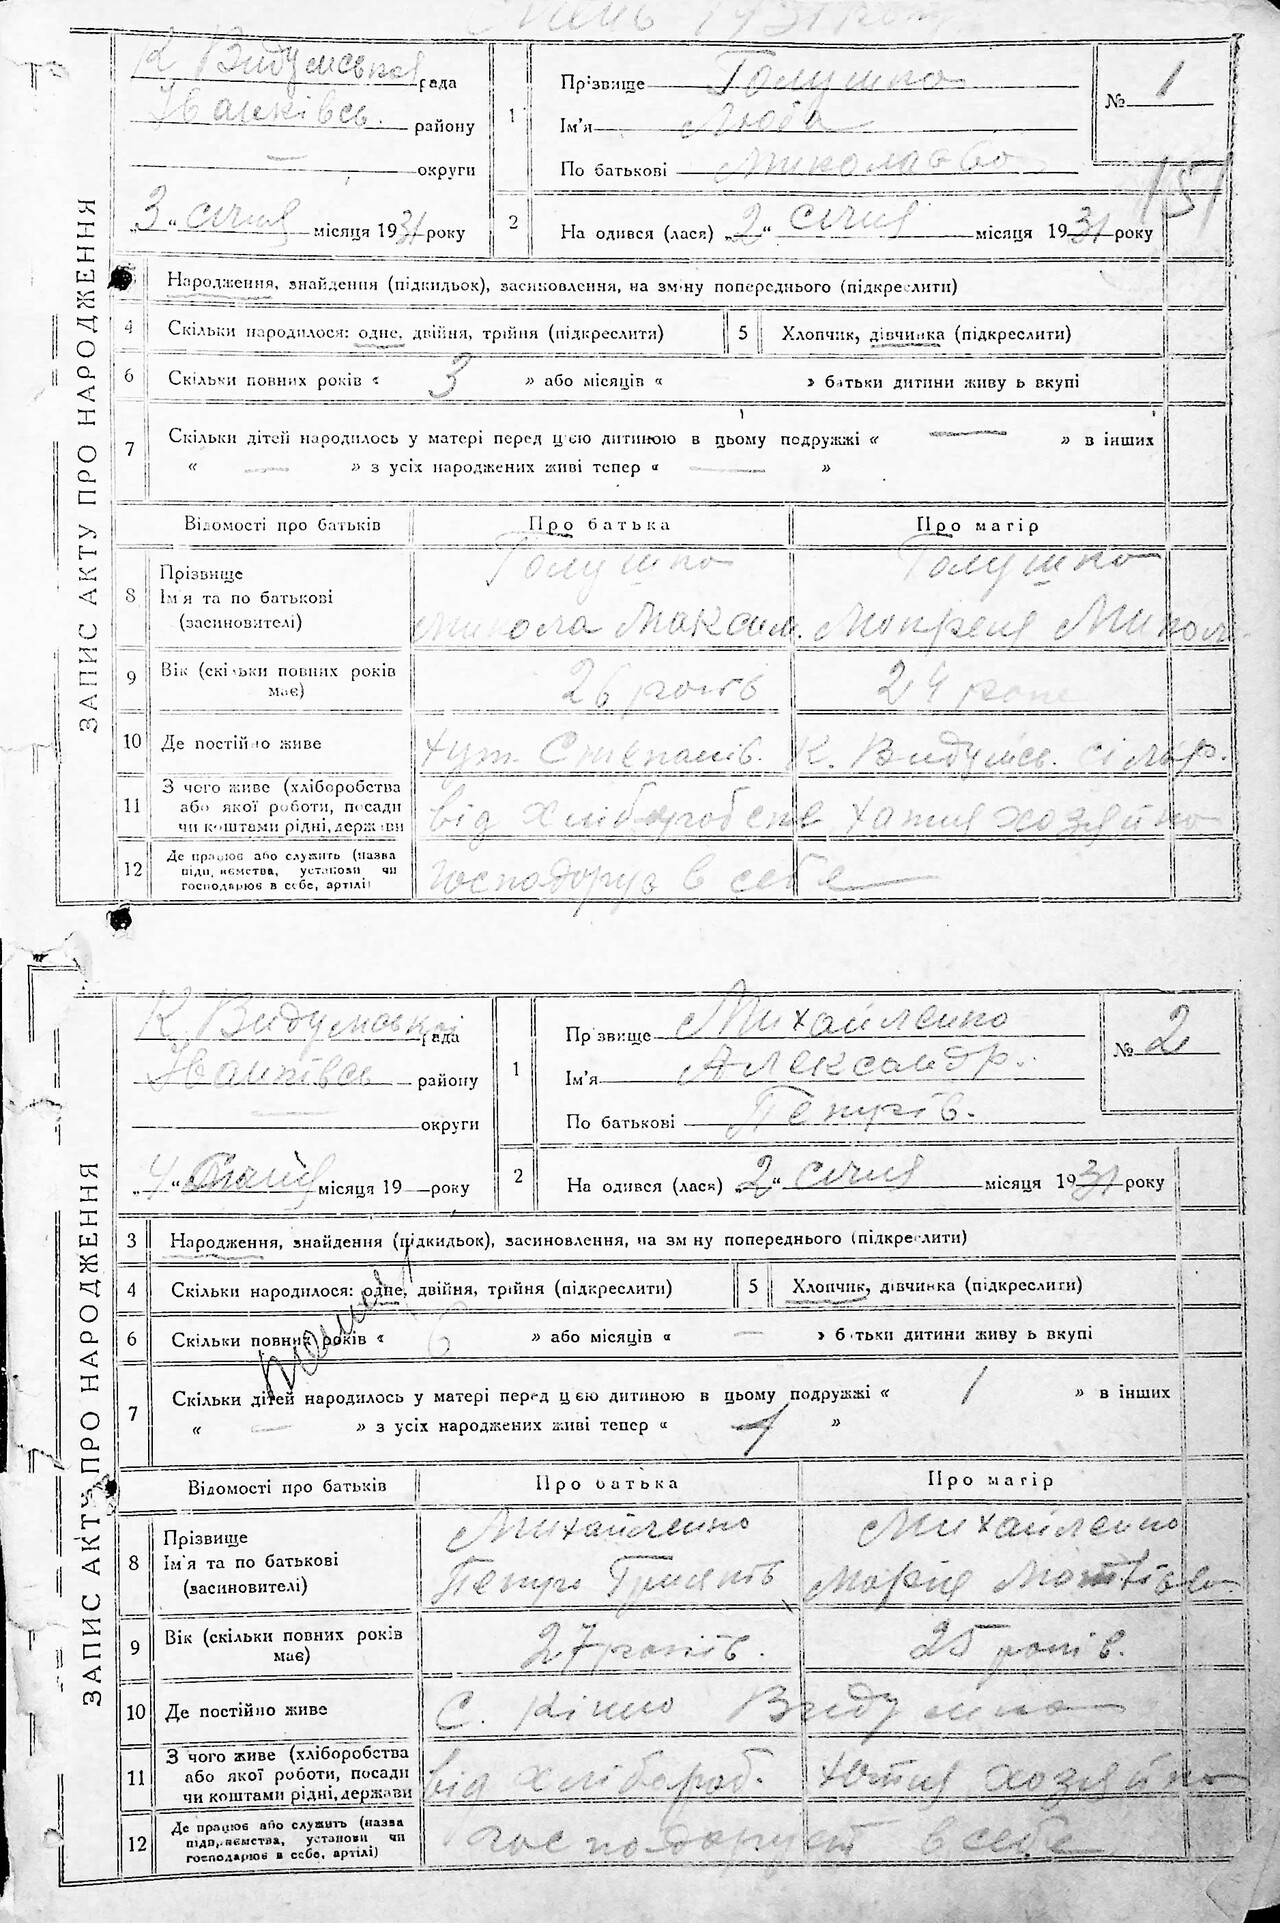 Січень 1931 року
ЗАПИС АКТУ ПРО НАРОДЖЕННЯ
К Видумської рада
Іванківсь. району
— округи
„3“ січня місяця 1931 року
1
Прізвище Голушко
Ім'я Люба
По батькові Миколаєвна
№ 1
151
2
На одився (лася) „2“ січня місяця 1931 року
Народження, знайдення (підкидьок), засиновлення, на зм:ну попереднього (підкреслити)
4 Скільки народилося: одне, двійня, трійня (підкреслити)
5 Хлопчик, дівчинка (підкреслити)
6 Скільки повних років « 3 » або місяців « » батьки дитини живу ь вкупі
7 Скільки дітей народилось у матері перед цією дитиною в цьому подружжі « — » в інших
« — » з усіх народжених живі тепер « — »
Відомості про батьків Про батька Про матір
8 Прізвище Голушко Голушко
Ім'я та по батькові
(засиновителі) Микола Максим.
9 Вік (скільки повних років має) 26 років 24 роки
10 Де постійно живе хут. Степанів. К. Видумсь. сільр.
11 З чого живе (хліборобства
або якої роботи, посади
чи коштами рідні, держави від хліборобства хатня хозяйка
12 Де працює або служить (назва
підприємства, установи чи
господарює в себе, артілі) господорує в себе
ЗАПИС АКТУ ПРО НАРОДЖЕННЯ
К Видумської рада
Іванківсь району
— округи
„4“ Січня місяця 19 — року
1
Прізвище Михайленко
Ім'я Александр.
По батькові Петрів.
№ 2
2
На одився (лася) „2“ січня місяця 1931 року
3 Народження, знайдення (підкидьок), засиновлення, на зм ну попереднього (підкреслити)
4 Скільки народилося: одне, двійня, трійня (підкреслити)
5 Хлопчик, дівчинка (підкреслити)
6 Скільки повних років « 6 » або місяців « — » батьки дитини живу ь вкупі
7 Скільки дітей народилось у матері перед цією дитиною в цьому подружжі « 1 » в інших
« — » з усіх народжених живі тепер « 1 »
Відомості про батьків Про батька Про матір
8 Прізвище Михайленко Михайленко
Ім'я та по батькові
(засиновителі) Петро Марія
9 Вік (скільки повних років має) 27 років. 25 років.
10 Де постійно живе С. Кінно Видумка
11 З чого живе (хліборобства
або якої роботи, посади
чи коштами рідні, держави від хлібороб. хатня хозяйка
12 Де працює або служить (назва
підприємства, установи чи
господарює в себе, артілі) господарует в себе